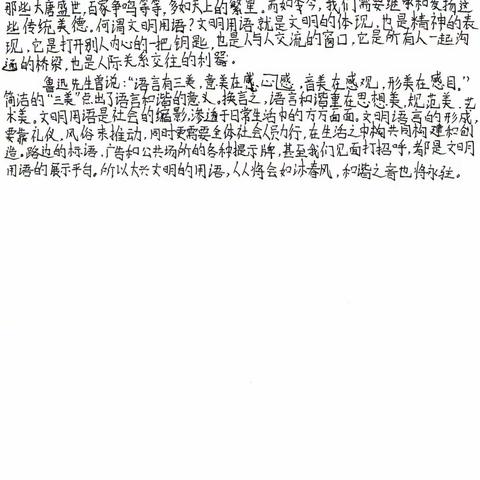 那些大唐盛世,百家争鸣等等,多如天上的繁星。而如今,我们需要继承和发扬这
些传统美德。何谓文明用语?文明用语就是文明的体现,也是精神的表
现,它是打开别人内心的一把钥匙,也是人与人交流的窗口,它是所有人一起沟
通的桥梁,也是人际关系交往的利器。
鲁迅先生曾说:“语言有三美,意美在感心感,音美在感观,形美在感目。”
简洁的“三美”点出了语言和谐的意义。换言之,语言和谐重在思想美、规范美、艺
术美。文明用语是社会的缩影,渗透于日常生活中的方方面面。文明语言的形成,
要靠礼仪、风俗来推动,同时更需要全体社会人员力行,在生活之中构共同构建和创
造。路边的标语、广告和公共场所的各种提示牌,甚至我们见面打招呼,都是文明
用语的展示平台。所以大兴文明的用语,人人将会如沐春风,和谐之音也将永驻。